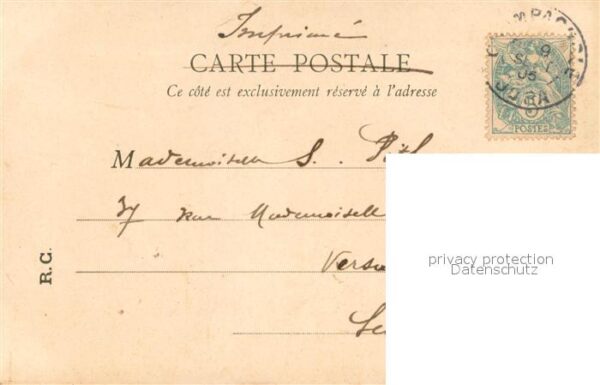 Imprimé
CARTE POSTALE
Ce côté est exclusivement réservé à l'adresse
9
05
JURA
POSTES
Mademoiselle S.
37 Rue Mademoiselle
Versa
R.C.
privacy protection
Datenschutz